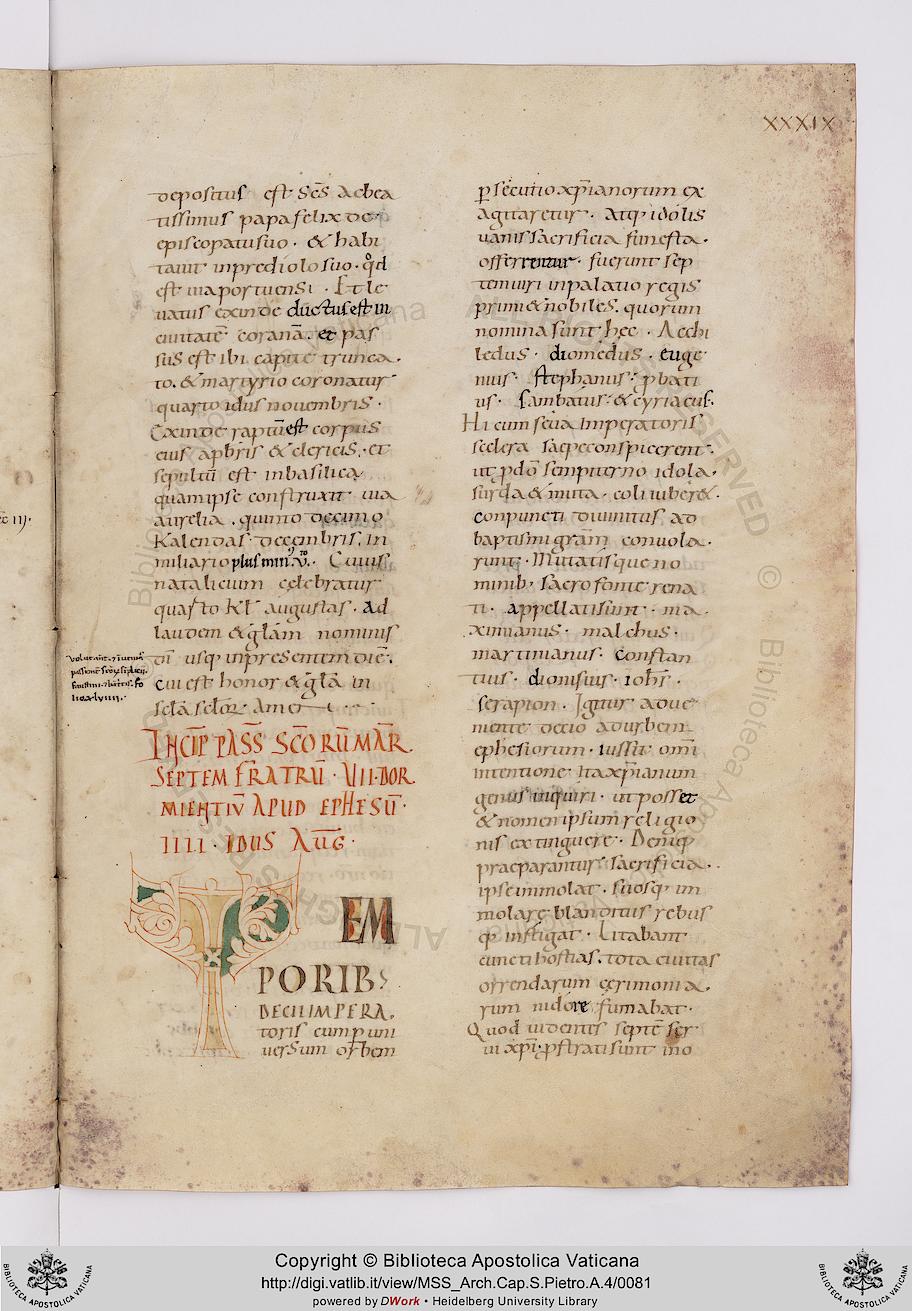 XXXIX
depositus est Scs̄ ac bea
tissimus papa felix de
episcopatu suo · & habi
tauit in prediolo suo · qd̊
est uia portuensi · Et le
uatus exinde ductus est in
ciuitatē coranā · et pas
sus est ibi capite trunca·
to · & martyrio coronatur
quarto idus nouembris ·
Exinde raptū est corpus
eius apbris & clericis · et
sepultū est in basilica
quam ipse construxit uia
aurelia · quinto decimo
Kalendas decembris · in
miliario plus min᾿ · Cuius
natalicium celebratur
quarto Kl̄ augustas · Ad
laudem & glām nominis
dī usq in presentem diē ·
Cui est honor & glā in
sclā sclor̄ amen
INCIP̄ PASS̄ SCŌRŪ MAR̄
SEPTEM FRATRŪ · VII · DOR
MIENTIŪ APUD EPHESŪ ·
IIII · IDUS AUG̅ ·
T EM
PORIB;
DECII IMPERA·
toris cum p uni
uersum orbem
psecutio xp̄ianorum ex
agitaretur · Atq· idolis
uanis sacrificia funesta ·
offerrentur · fuerunt sep
tem uiri in palatio regis
primi & nobiles · quorum
nomina sunt hec · Achi
ledus · diomedus · euge
nius · stephanus · pbati
us · sambatus · & cyriacus ·
Hi cum seua Imperatoris
scelera saepe conspicerent ·
ut p dō sempiterno idola ·
surda & muta · coli iuber& ·
conpuncti diuinitus ad
baptismi grām conuola·
runt · Mutatisque no
minib; sacro fonte rena
ti · appellati sunt · ma·
ximianus · malchus ·
martinianus · Constan
tius · dionisius · iohs̄ ·
serapion · Igitur adue
niente decio ad urbem
ephesiorum · iussit omī
intentione · ita xp̄ianum
genus inquiri · ut posset
& nomen ipsum religio
nis extinguere · Deniq
praeparantur sacrificia ·
ipse immolat · suosq im
molare blanditus rebus
instigat · Litabant
cuncti hostias · tota ciuitas
offendarum cerimonia·
rum nidore fumabat ·
Quod uidentes septē ser
ui xp̄i · pstrati sunt ino
Copyright © Biblioteca Apostolica Vaticana
http://digi.vatlib.it/view/MSS_Arch.Cap.S.Pietro.A.4/0081
powered by DWork • Heidelberg University Library
BIBLIOTECA APOSTOLICA VATICANA
BIBLIOTECA APOSTOLICA VATICANA